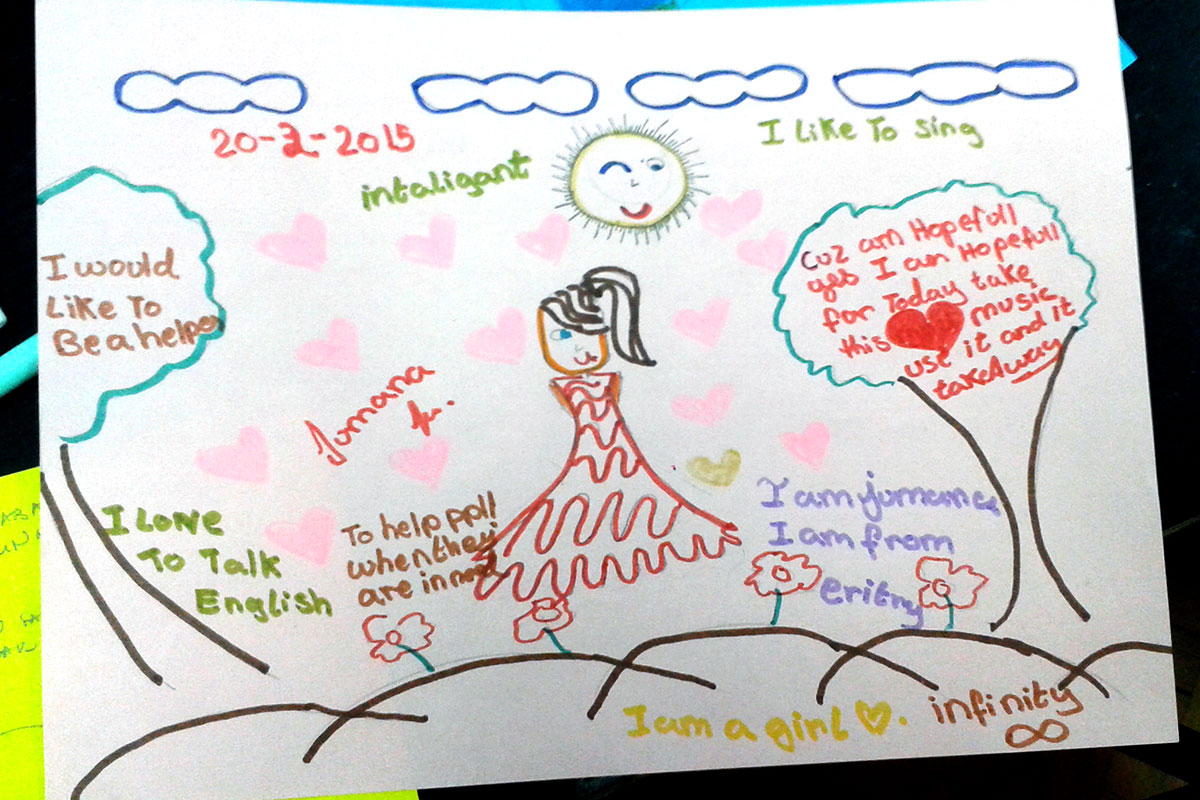 20-2-2015
I Like To sing
intaligant
I would
Like To
Be a helper
Cuz am Hopefoll
yes I am Hopefull
for Today take
this music
use it and it
take Away
Jumana
I am jumana
I am from
I Love
To Talk
English
To help ppll
when they
are in need
I am a girl
infinity
∞